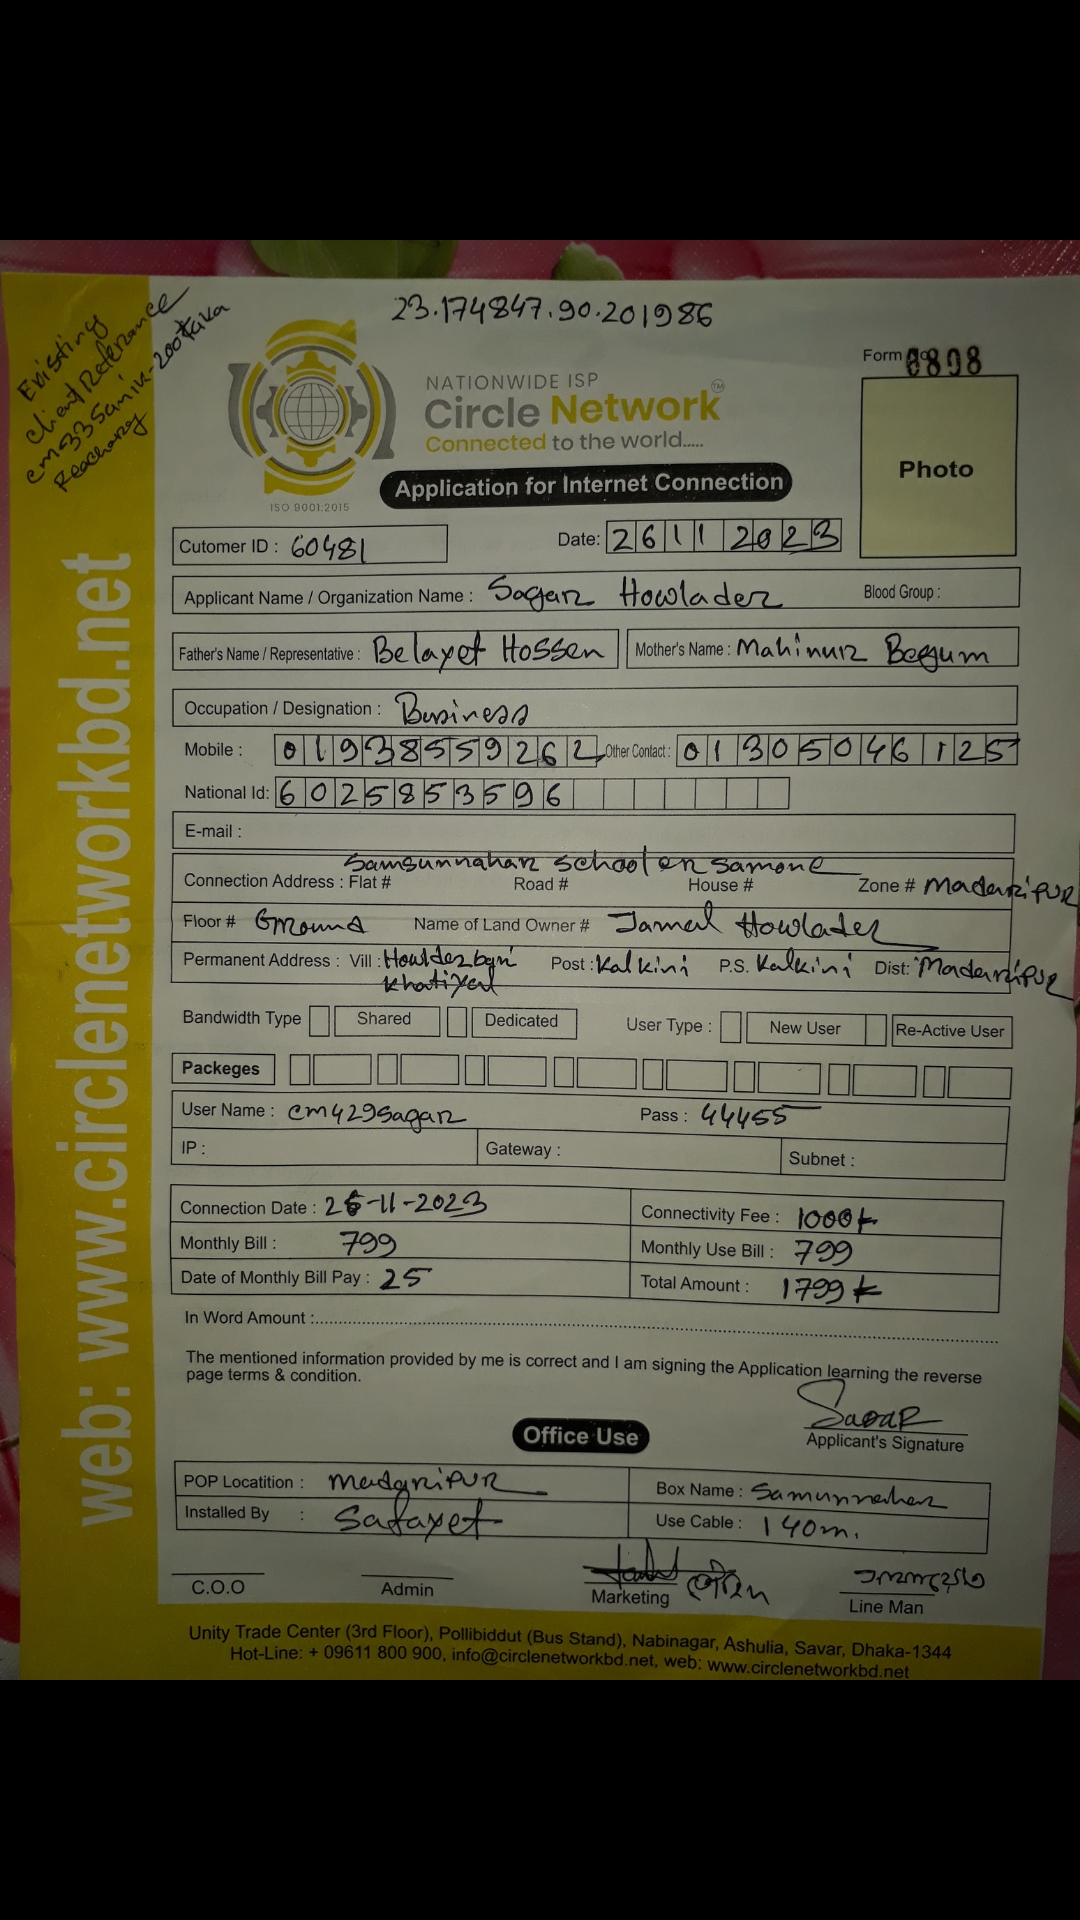 23.174847.90.201986
Existing
Client Referance
cm335amin-200taka
Reacharg
Form no
0808
NATIONWIDE ISP
Circle Network TM
Connected to the world.....
ISO 9001:2015
Application for Internet Connection
Photo
Cutomer ID : 60481
Date: 26 11 2023
Applicant Name / Organization Name : Sagar Howlader Blood Group :
Father's Name / Representative : Belayet Hossen Mother's Name : Mahinur Begum
Occupation / Designation : Business
Mobile : 01938559262 Other Contact : 01305046125
National Id: 6025853596
E-mail :
Samsunnahar school er samone
Connection Address : Flat # Road # House # Zone # Madaripur
Floor # Ground Name of Land Owner # Jamal Howlader
Permanent Address : Vill : Howlderbari Post : Kalkini P.S. Kalkini Dist: Madaripur
Khatiyal
Bandwidth Type Shared Dedicated User Type : New User Re-Active User
Packeges
User Name : cm429sagar Pass : 44455
IP : Gateway : Subnet :
Connection Date : 26-11-2023 Connectivity Fee : 1000
Monthly Bill : 799 Monthly Use Bill : 799
Date of Monthly Bill Pay : 25 Total Amount : 1799
In Word Amount :
The mentioned information provided by me is correct and I am signing the Application learning the reverse
page terms & condition.
Sagar
Applicant's Signature
Office Use
POP Locatition : Madaripur Box Name : Samunnahar
Installed By : Safayet Use Cable : 140m.
C.O.O Admin Marketing Line Man
Unity Trade Center (3rd Floor), Pollibiddut (Bus Stand), Nabinagar, Ashulia, Savar, Dhaka-1344
Hot-Line: + 09611 800 900, info@circlenetworkbd.net, web: www.circlenetworkbd.net
web: www.circlenetworkbd.net